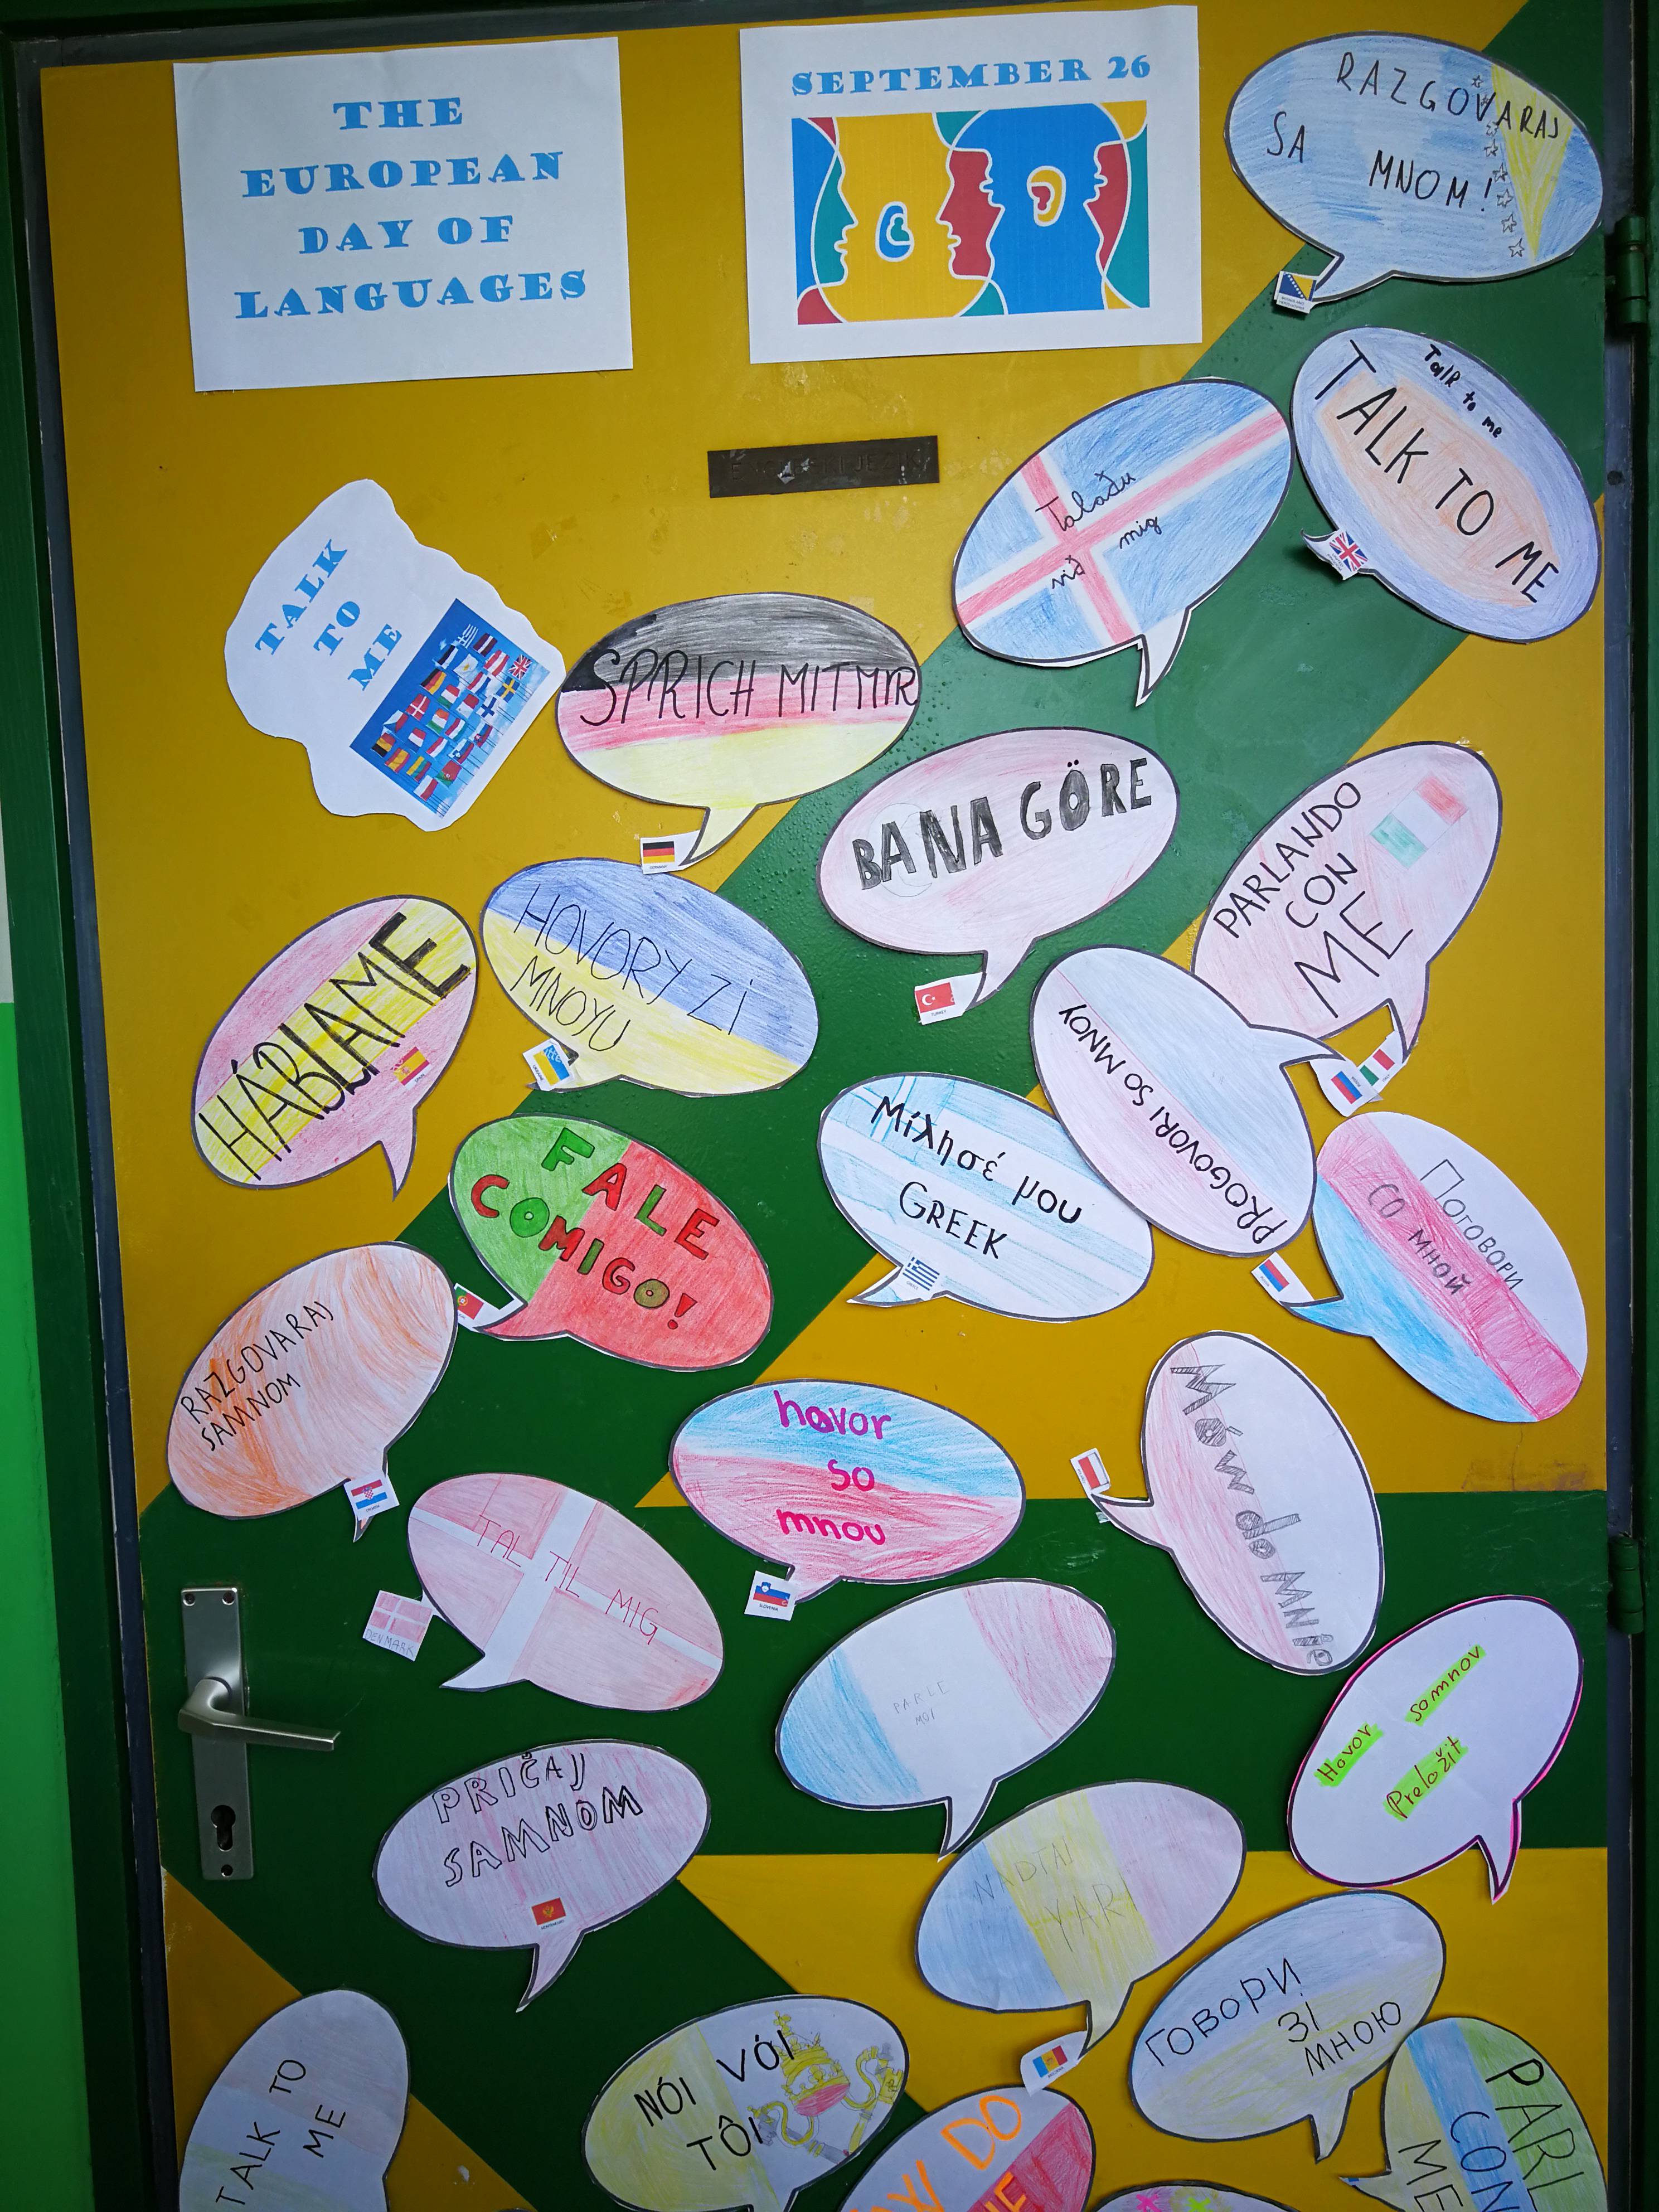 THE
EUROPEAN
DAY OF
LANGUAGES
SEPTEMBER 26
RAZGOVARAJ
SA
MNOM!
Talk to me
TALK TO ME
Talaðu
við mig
TALK
TO
ME
SPRICH MIT MIR
BANA GÖRE
TURKEY
PARLANDO
CON
ME
HÁBLAME
HOVORY ZI
MNOYU
PROGOVORI SO MNOY
FALE
COMIGO!
Μίλησέ μου
GREEK
Поговори
со мной
RAZGOVARAJ
SAMNOM
havor
so
mnou
SLOVENIA
Mów do MNie
TAL TIL MIG
DENMARK
PARLE
MOI
Hovor somnov
Preložit
PRIČAJ
SAMNOM
YAR
ГОВОРИ
ЗІ
МНОЮ
NÓI VÓI
TÔI
TALK TO
ME
DO
PARL
CON
ME